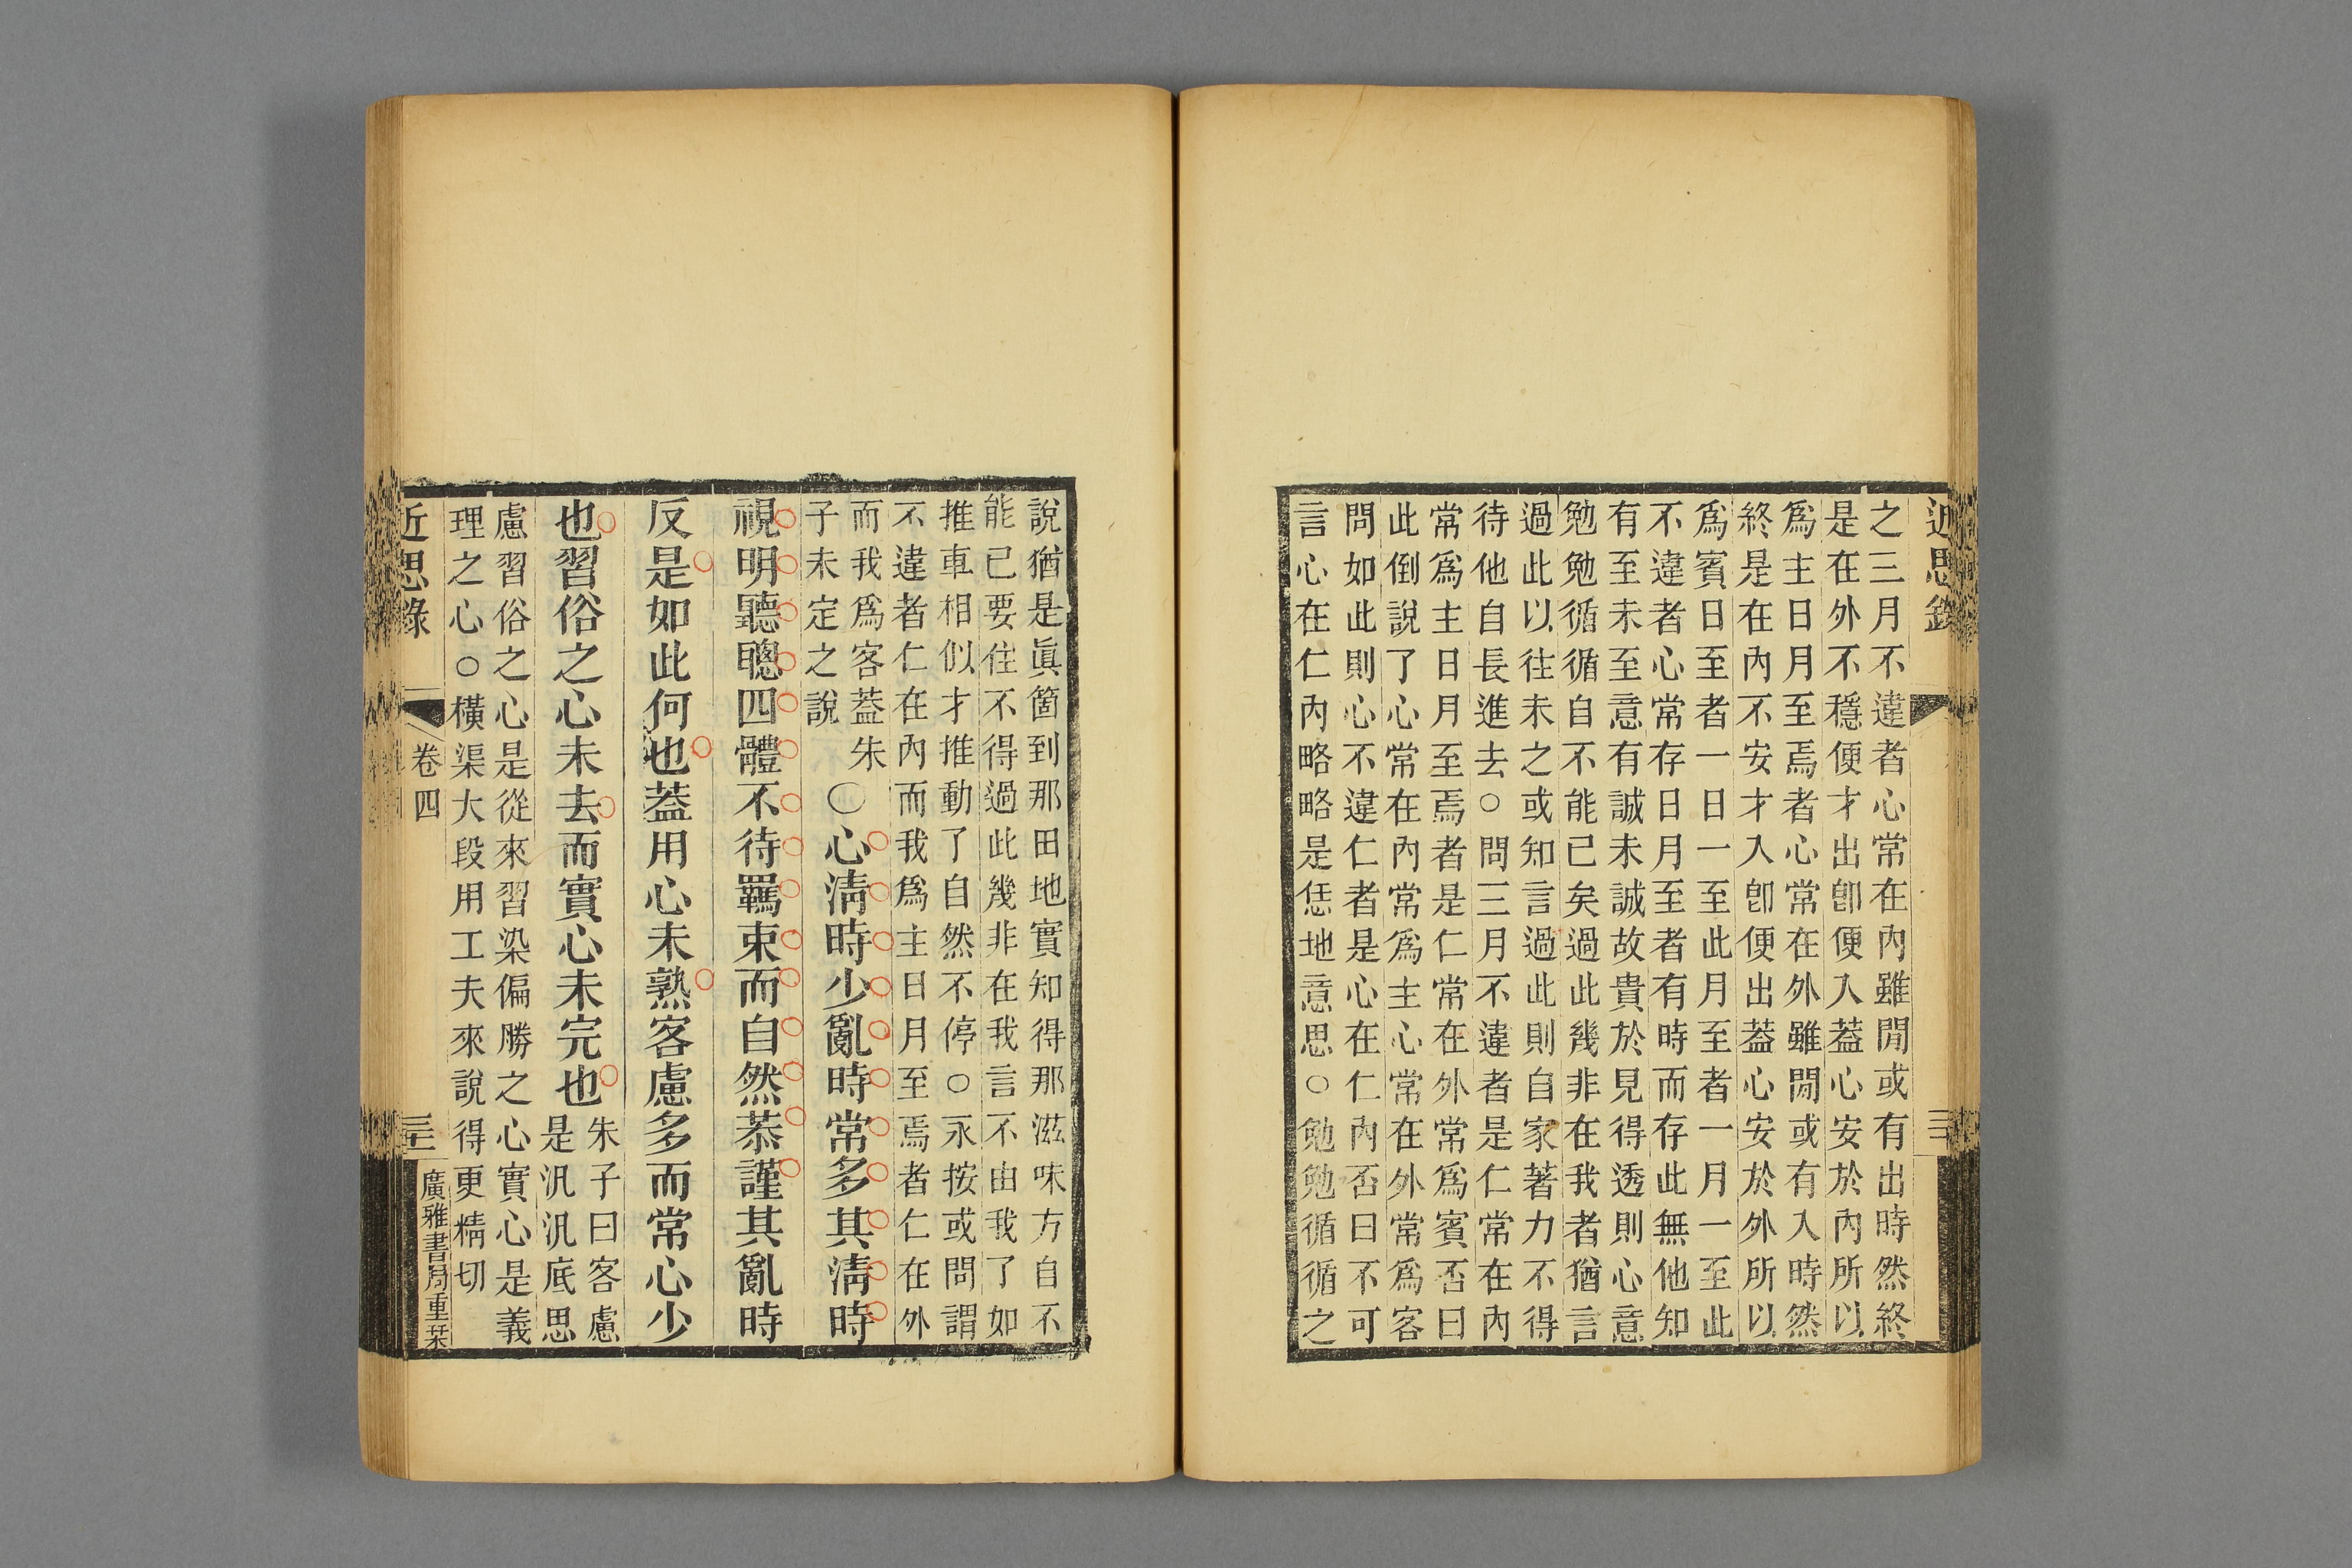 近思錄
之三月不違者心常在內雖閒或有出時然終
是在外不穩便才出卽便入蓋心安於內所以
爲主日月至焉者心常在外雖閒或有入時然
終是在內不安才入卽便出蓋心安於外所以
爲賓日至者一日一至此月至者一月一至此
不違者心常存日月至者有時而存此無他知
有至未至意有誠未誠故貴於見得透則心意
勉勉循循自不能已矣過此幾非在我者猶言
過此以往未之或知言過此則自家著力不得
待他自長進去○問三月不違者是仁常在內
常爲主日月至焉者是仁常在外常爲賓否曰
此倒說了心常在內常爲主心常在外常爲客
問如此則心不違仁者是心在仁內否曰不可
言心在仁內略略是恁地意思○勉勉循循之
說猶是眞箇到那田地實知得那滋味方自不
能已要住不得過此幾非在我言不由我了如
推車相似才推動了自然不停○永按或問謂
不違者仁在內而我爲主日月至焉者仁在外
而我爲客蓋朱
子未定之說
○心淸時少亂時常多其淸時
視明聽聰四體不待羈束而自然恭謹其亂時
反是如此何也蓋用心未熟客慮多而常心少
也習俗之心未去而實心未完也
朱子曰客慮
是汎汎底思
慮習俗之心是從來習染偏勝之心實心是義
理之心○橫渠大段用工夫來說得更精切
近思錄
卷四
廣雅書局重栞